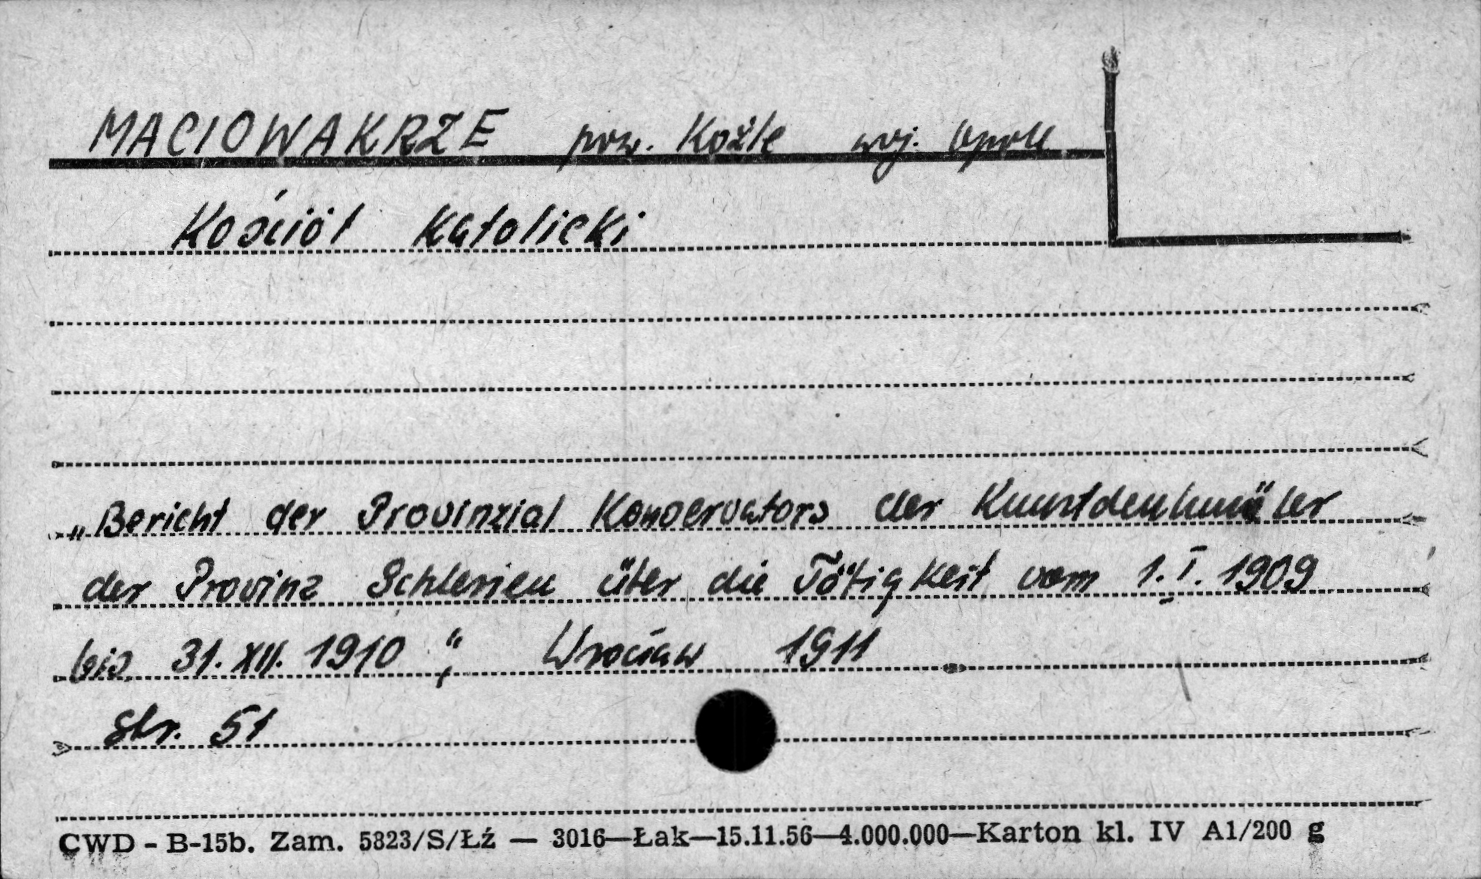 MACIOWAKRZE pow. Koźle woj. Opole
Kościół Katolicki
„Bericht der Provinzial Konservators der Kunstdenkmäler
der Provinz Schlesien über die Tätigkeit vom 1.I.1909
bis 31.XII.1910", Wrocław 1911
str. 51
CWD - B-15b. Zam. 5323/S/Łź — 3016—Łak—15.11.56—4.000.000—Karton kl. IV A1/200 g